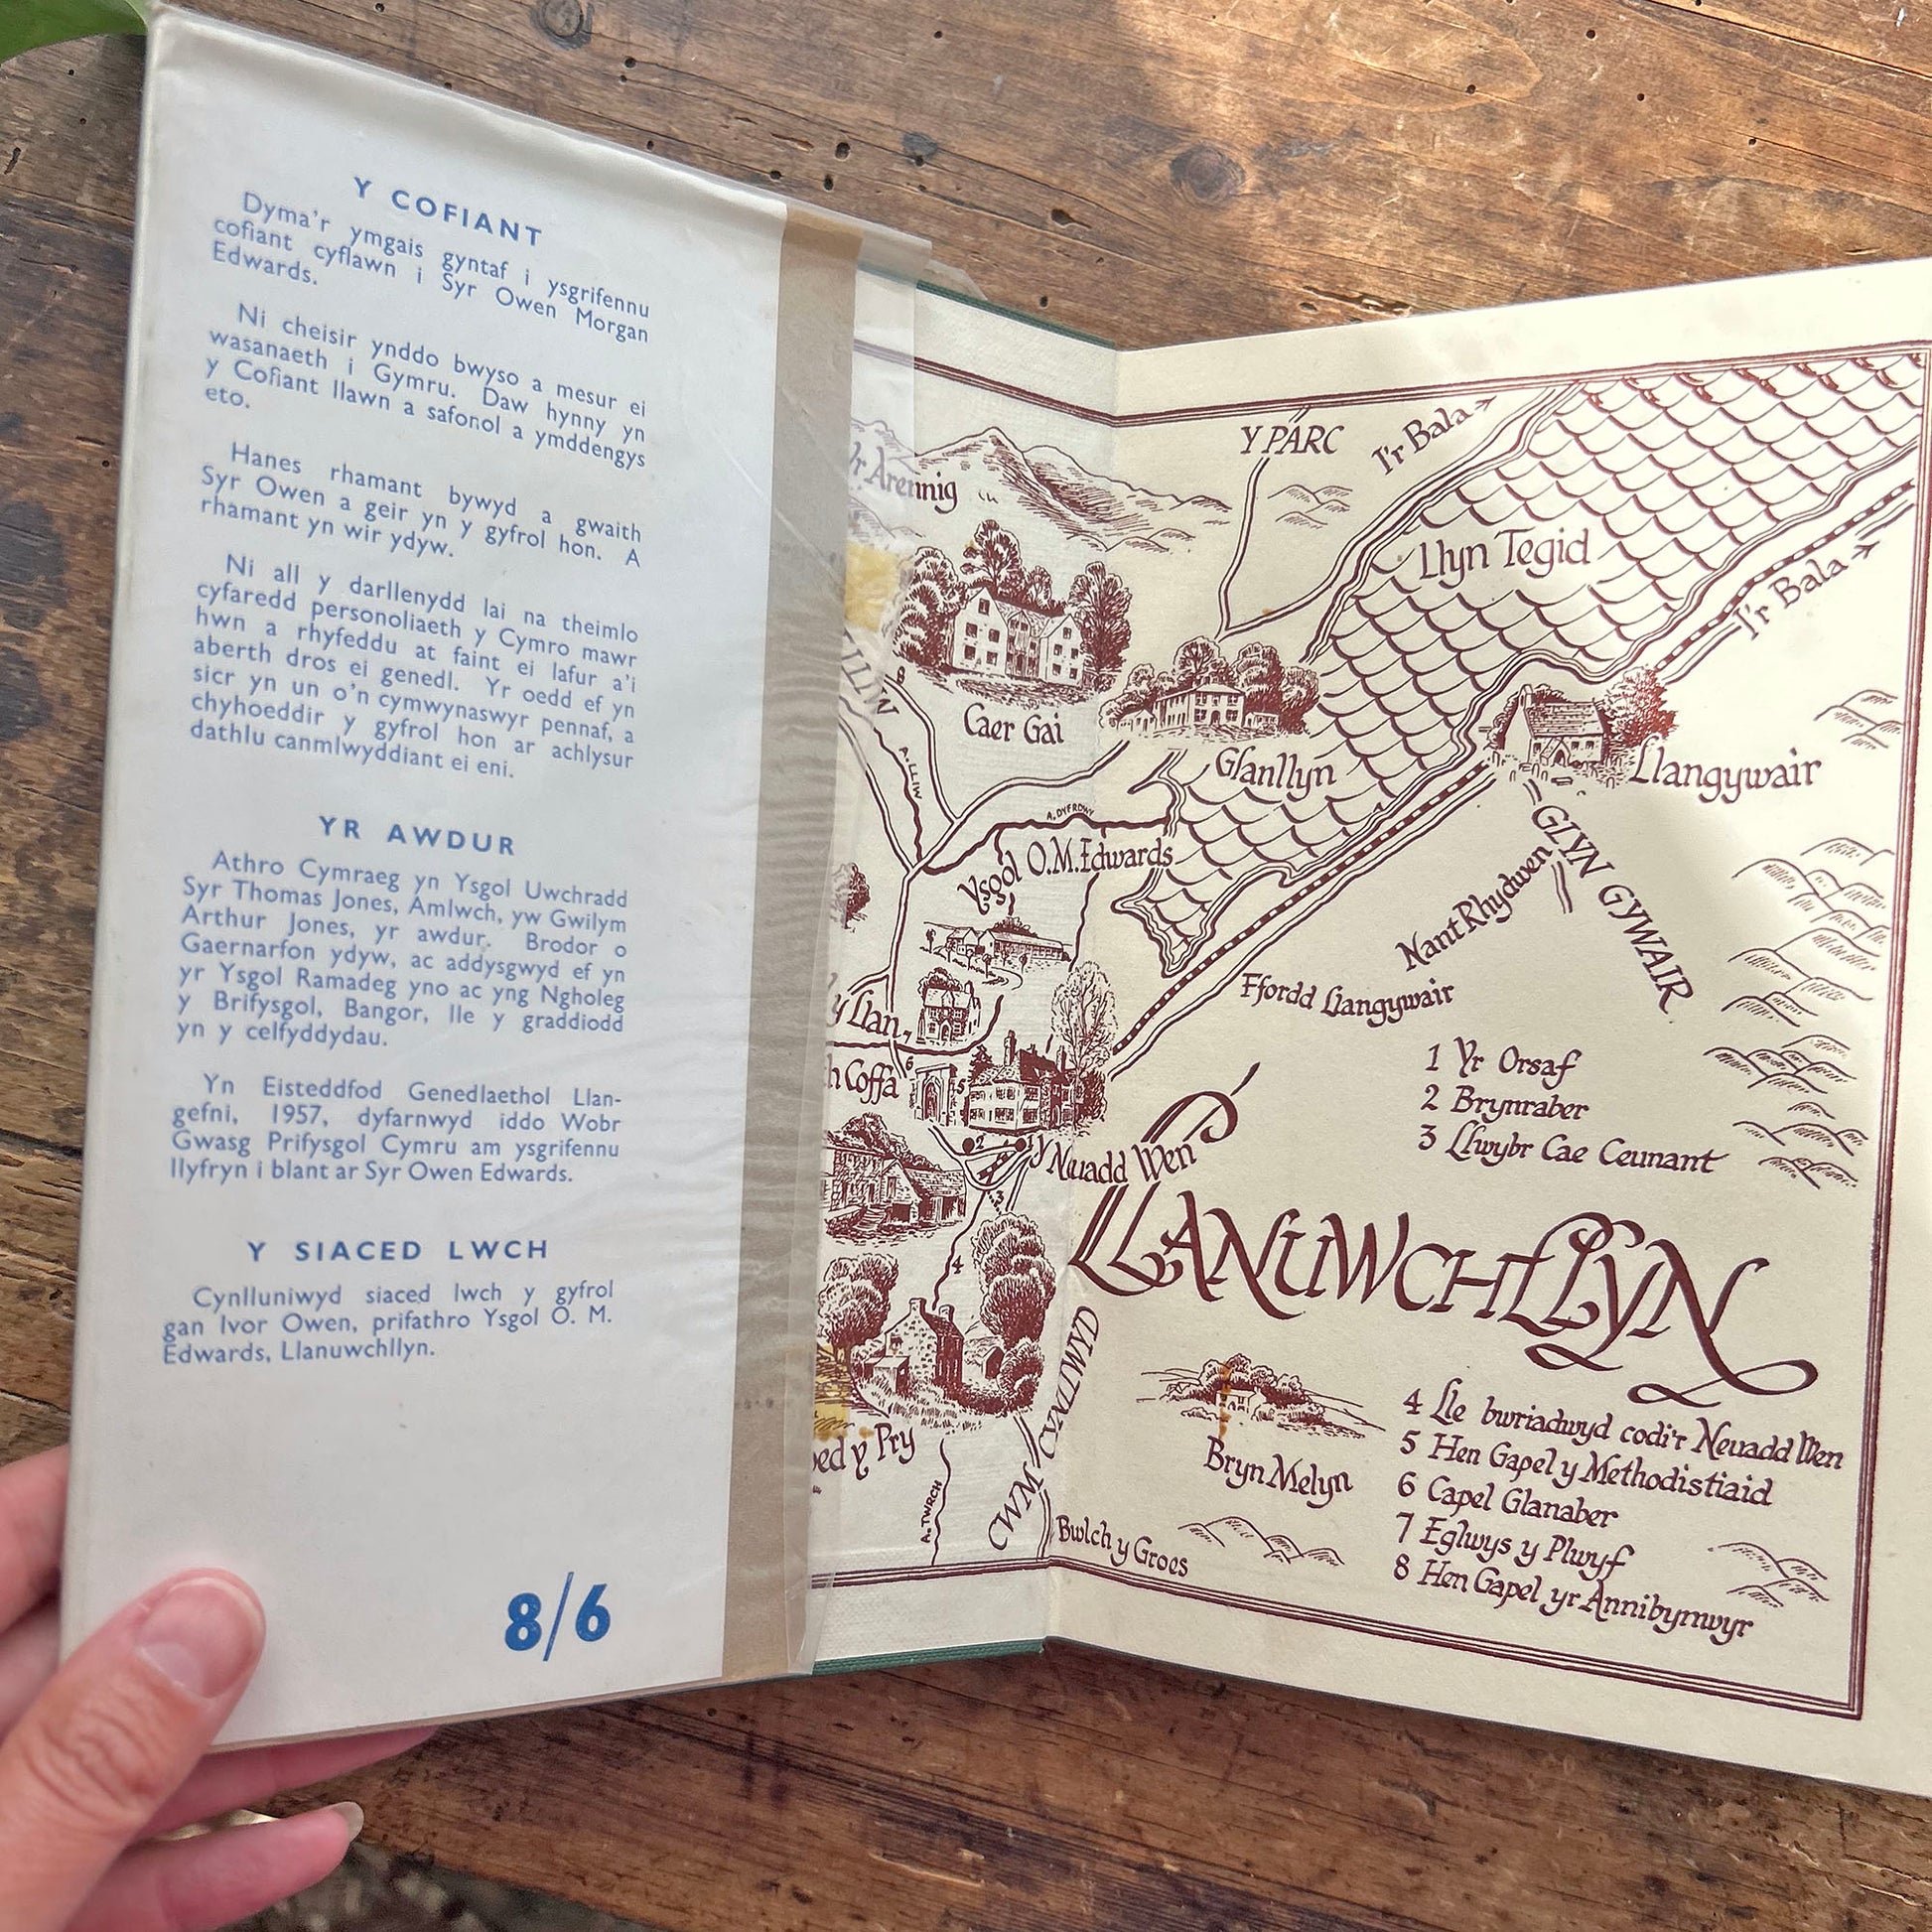 Y COFIANT
Dyma'r ymgais gyntaf i ysgrifennu
cofiant cyflawn i Syr Owen Morgan
Edwards.
Ni cheisir ynddo bwyso a mesur ei
wasanaeth i Gymru. Daw hynny yn
y Cofiant llawn a safonol a ymddengys
eto.
Hanes rhamant bywyd a gwaith
Syr Owen a geir yn y gyfrol hon. A
rhamant yn wir ydyw.
Ni all y darllenydd lai na theimlo
cyfaredd personoliaeth y Cymro mawr
hwn a rhyfeddu at faint ei lafur a'i
aberth dros ei genedl. Yr oedd ef yn
sicr yn un o'n cymwynaswyr pennaf, a
chyhoeddir y gyfrol hon ar achlysur
dathlu canmlwyddiant ei eni.
YR AWDUR
Athro Cymraeg yn Ysgol Uwchradd
Syr Thomas Jones, Amlwch, yw Gwilym
Arthur Jones, yr awdur. Brodor o
Gaernarfon ydyw, ac addysgwyd ef yn
yr Ysgol Ramadeg yno ac yng Ngholeg
y Brifysgol, Bangor, lle y graddiodd
yn y celfyddydau.
Yn Eisteddfod Genedlaethol Llan-
gefni, 1957, dyfarnwyd iddo Wobr
Gwasg Prifysgol Cymru am ysgrifennu
llyfryn i blant ar Syr Owen Edwards.
Y SIACED LWCH
Cynlluniwyd siaced lwch y gyfrol
gan Ivor Owen, prifathro Ysgol O. M.
Edwards, Llanuwchllyn.
8/6
Yr Arennig
Y PARC
I'r Bala
Llyn Tegid
I'r Bala
8
Caer Gai
Glanllyn
Llangywair
A. LLIW
A. DYFRDWY
GLYN GYWAIR
Ysgol O.M. Edwards
Nant Rhydwen
Ffordd Llangywair
y Llan
7
6
Coffa
5
2
1
Y Neuadd Wen
3
4
1 Yr Orsaf
2 Brynraber
3 Llwybr Cae Ceunant
LLANUWCHLLYN
y Pry
A. TWRCH
CWM CYNLLWYD
Bryn Melyn
Bwlch y Groes
4 Lle bwriadwyd codi'r Neuadd Wen
5 Hen Gapel y Methodistiaid
6 Capel Glanaber
7 Eglwys y Plwyf
8 Hen Gapel yr Annibynwyr